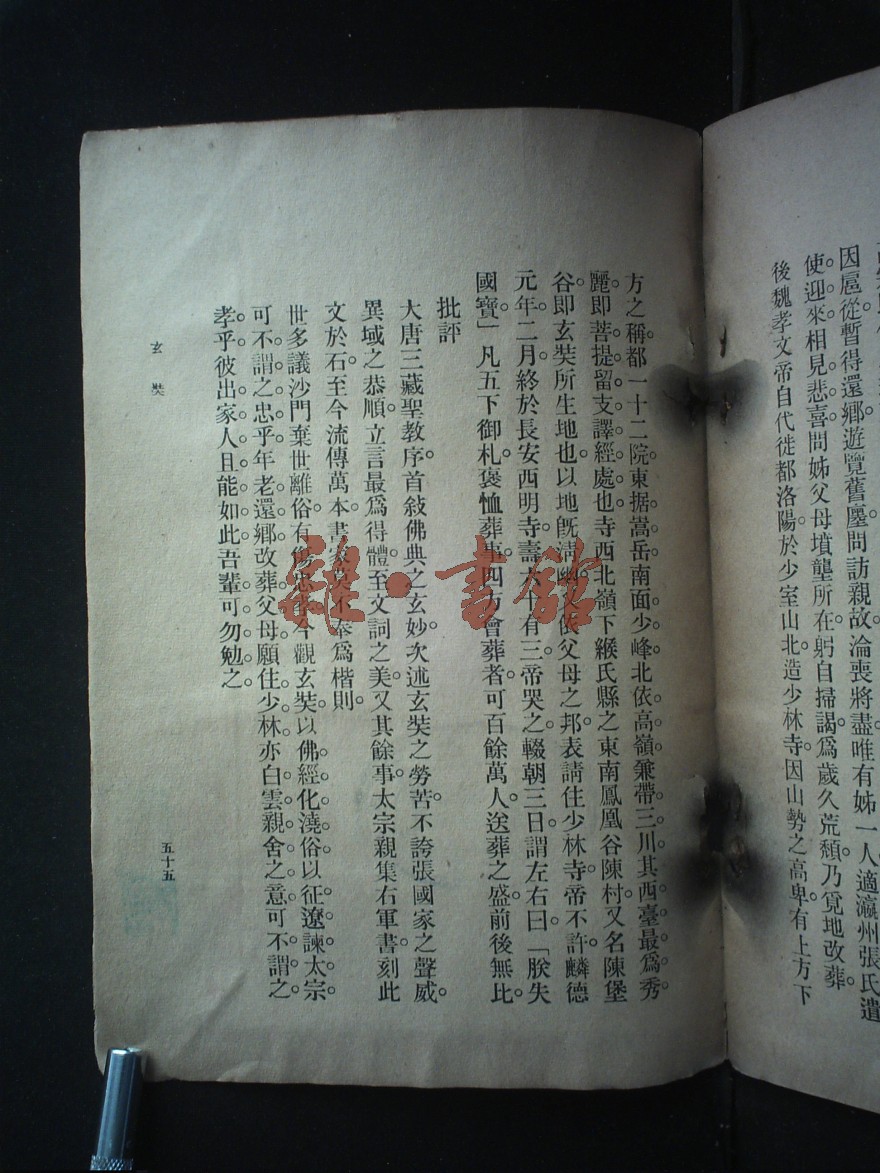 因扈從暫得還鄉遊覽舊廛問訪親故。淪喪將盡唯有姊一人適瀛州張氏遣
使迎來相見悲喜問姊父母墳壟所在躬自掃謁爲歲久荒頹乃覓地改葬。
後魏孝文帝自代徙都洛陽於少室山北造少林寺因山勢之高卑有上方下
方之稱。都一十二院。東据嵩岳南面少峰。北依高嶺兼帶三川。其西臺最爲秀
麗。即菩提留支譯經處也。寺西北嶺下緱氏縣之東南鳳凰谷陳村。又名陳堡
谷。即玄奘所生地也。以地旣淸幽。又依父母之邦。表請住少林寺。帝不許。麟德
元年二月終於長安西明寺壽六十有三。帝哭之。輟朝三日。謂左右曰。「朕失
國寶」凡五下御札褒恤葬事。四方會葬者。可百餘萬人。送葬之盛前後無比。
批評
大唐三藏聖教序首敍佛典之玄妙。次述玄奘之勞苦。不誇張國家之聲威。
異域之恭順。立言最爲得體。至文詞之美。又其餘事。太宗親集右軍書。刻此
文於石。至今流傳萬本。書家莫不奉爲楷則。
世多議沙門棄世離俗。有傷忠孝。今觀玄奘。以佛經化澆俗。以征遼諫太宗。
可不謂之忠乎。年老還鄉。改葬父母。願住少林。亦白雲親舍之意。可不謂之
孝乎。彼出家人。且能如此。吾輩可勿勉之。
玄奘
五十五
雜·書館